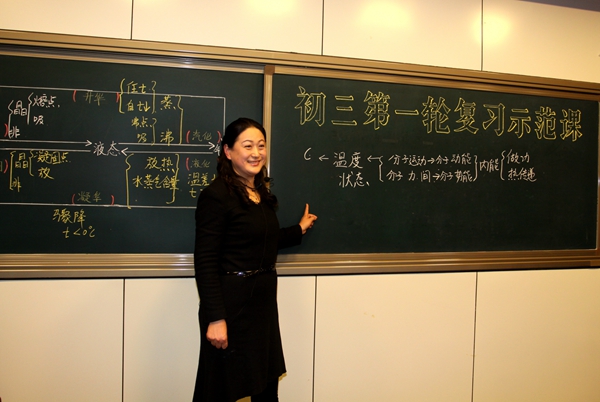 初三第一轮复习示范课
晶 熔点 升华 蒸
非 吸 沸点 吸 沸 汽化
液态
晶 凝固点 放热 液化
非 放 水蒸气含量 温差
凝华
骤降
t<0℃
C ← 温度 ← 分子运动→分子动能 内能 做功
状态 分子力 间→分子势能 热传递